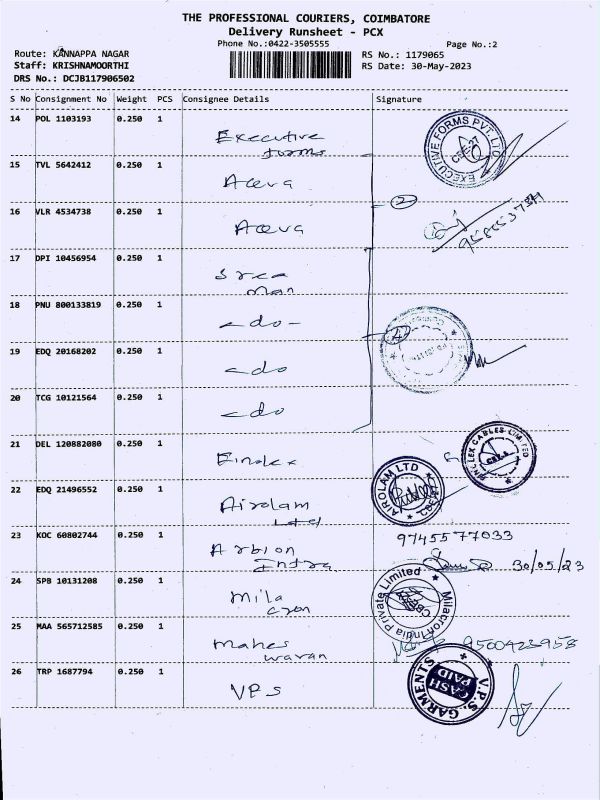 THE PROFESSIONAL COURIERS, COIMBATORE
Delivery Runsheet - PCX
Phone No.:0422-3505555
Page No.:2
Route: KANNAPPA NAGAR
RS No.: 1179065
Staff: KRISHNAMOORTHI
RS Date: 30-May-2023
DRS No.: DCJB117906502
S No Consignment No Weight PCS Consignee Details Signature
14 POL 1103193 0.250 1 Executive forms
EXECUTIVE FORMS PVT.LTD CBE-27
15 TVL 5642412 0.250 1 Aceva
16 VLR 4534738 0.250 1 Aceva
2
17 DPI 10456954 0.250 1 Sree man
18 PNU 800133819 0.250 1 -do-
4
19 EDQ 20168202 0.250 1 -do
20 TCG 10121564 0.250 1 -do
21 DEL 120882080 0.250 1 Finolex
CABLES LIMITED
22 EDQ 21496552 0.250 1 Airolam Ltd
AIROLAM LTD
23 KOC 60802744 0.250 1 Arbion Infra
9745577033
30/05/23
24 SPB 10131208 0.250 1 Mila cron
Milacron India Private Limited
25 MAA 565712585 0.250 1 Mahes waran
9500423958
26 TRP 1687794 0.250 1 VPS
V.P.S. GARMENTS CASH PAID